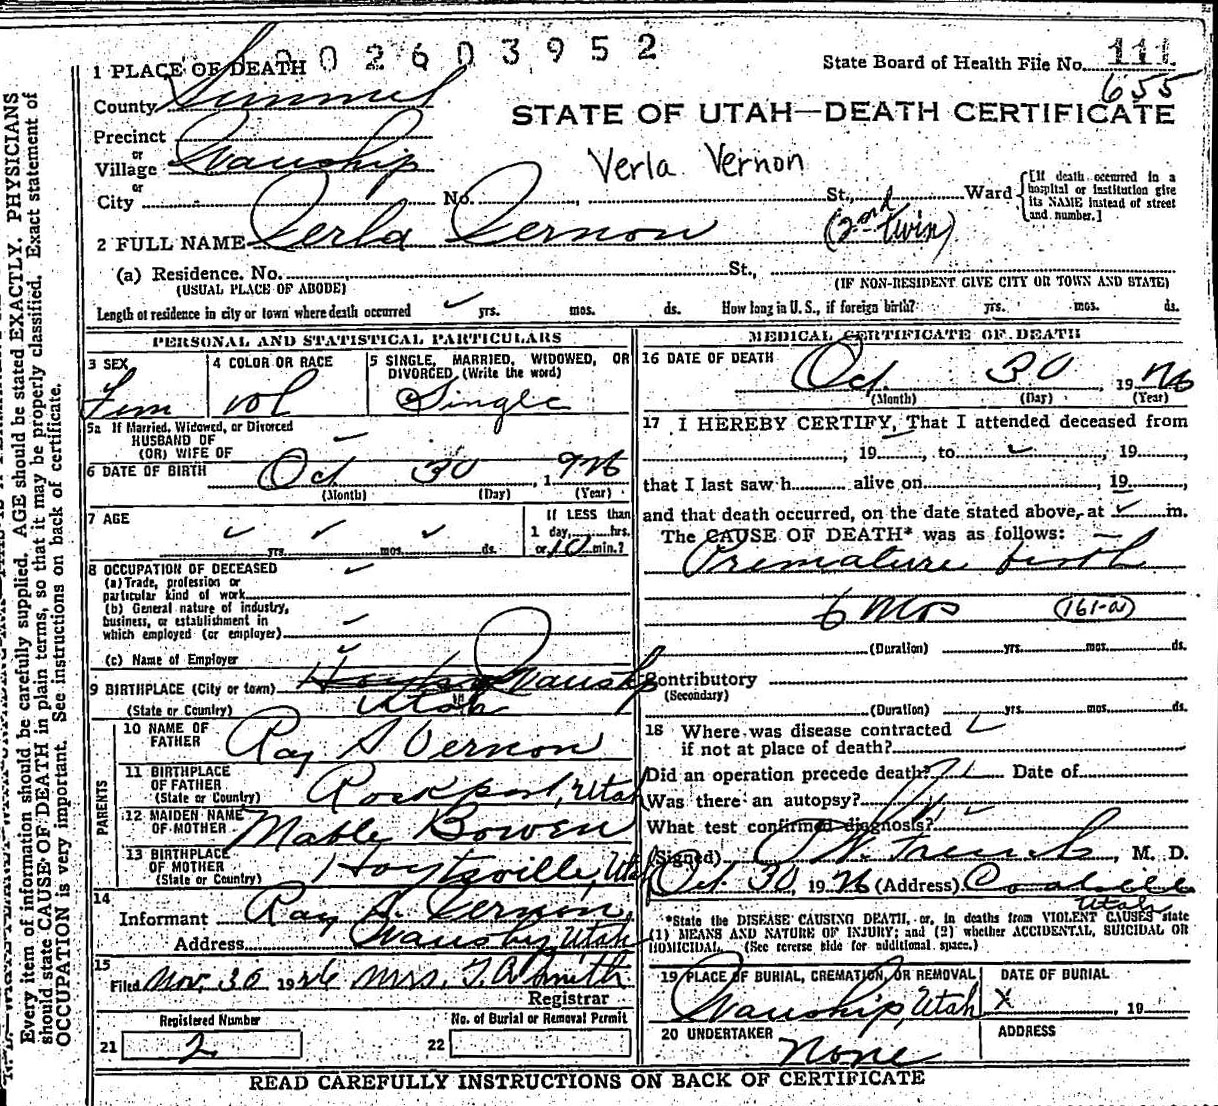 002603952
1 PLACE OF DEATH
State Board of Health File No. 111
655
County Summit
STATE OF UTAH—DEATH CERTIFICATE
Precinct
or
Village Wanship
Verla Vernon
or
City No. , St., Ward
[If death occurred in a hospital or institution give its NAME instead of street and number.]
2 FULL NAME Verla Vernon (2nd twin)
(a) Residence. No. St.,
(USUAL PLACE OF ABODE) (IF NON-RESIDENT GIVE CITY OR TOWN AND STATE)
Length of residence in city or town where death occurred ✓ yrs. mos. ds. How long in U. S., if foreign birth? yrs. mos. ds.
PERSONAL AND STATISTICAL PARTICULARS
3 SEX
Fem
4 COLOR OR RACE
Wh
5 SINGLE, MARRIED, WIDOWED, OR
DIVORCED (Write the word)
Single
5a If Married, Widowed, or Divorced
HUSBAND OF
(OR) WIFE OF
6 DATE OF BIRTH Oct 30, 1926
(Month) (Day) (Year)
7 AGE
✓ yrs. ✓ mos. ✓ ds.
If LESS than
1 day, hrs.
or 10 min.?
8 OCCUPATION OF DECEASED
(a) Trade, profession or
particular kind of work
(b) General nature of industry,
business, or establishment in
which employed (or employer)
(c) Name of Employer
9 BIRTHPLACE (City or town) Wanship
(State or Country) Utah
PARENTS
10 NAME OF
FATHER Ray S Vernon
11 BIRTHPLACE
OF FATHER
(State or Country) Rockport, Utah
12 MAIDEN NAME
OF MOTHER Mable Bowen
13 BIRTHPLACE
OF MOTHER
(State or Country) Hoytsville, Utah
14
Informant Ray S. Vernon,
Address Wanship, Utah
15
Filed Nov. 30 1926 Mrs. T. A. Smith
Registrar
Registered Number
21 2
No. of Burial or Removal Permit
22
MEDICAL CERTIFICATE OF DEATH
16 DATE OF DEATH
Oct. 30, 1926
(Month) (Day) (Year)
17 I HEREBY CERTIFY, That I attended deceased from
, 19 , to ✓ , 19 ,
that I last saw h alive on , 19 ,
and that death occurred, on the date stated above, at ✓ m.
The CAUSE OF DEATH* was as follows:
Premature birth
6 mos (161-a)
(Duration) yrs. mos. ds.
Contributory
(Secondary)
(Duration) yrs. mos. ds.
18 Where was disease contracted
if not at place of death?
Did an operation precede death? Date of
Was there an autopsy?
What test confirmed diagnosis?
(Signed) , M. D.
Oct. 30, 1926 (Address) Coalville
Utah
*State the DISEASE CAUSING DEATH, or, in deaths from VIOLENT CAUSES state
(1) MEANS AND NATURE OF INJURY; and (2) whether ACCIDENTAL, SUICIDAL OR
HOMICIDAL. (See reverse side for additional space.)
19 PLACE OF BURIAL, CREMATION, OR REMOVAL
Wanship, Utah
DATE OF BURIAL
X , 19
20 UNDERTAKER
None
ADDRESS
READ CAREFULLY INSTRUCTIONS ON BACK OF CERTIFICATE
Every item of information should be carefully supplied. AGE should be stated EXACTLY. PHYSICIANS
should state CAUSE OF DEATH in plain terms, so that it may be properly classified. Exact statement of
OCCUPATION is very important. See instructions on back of certificate.